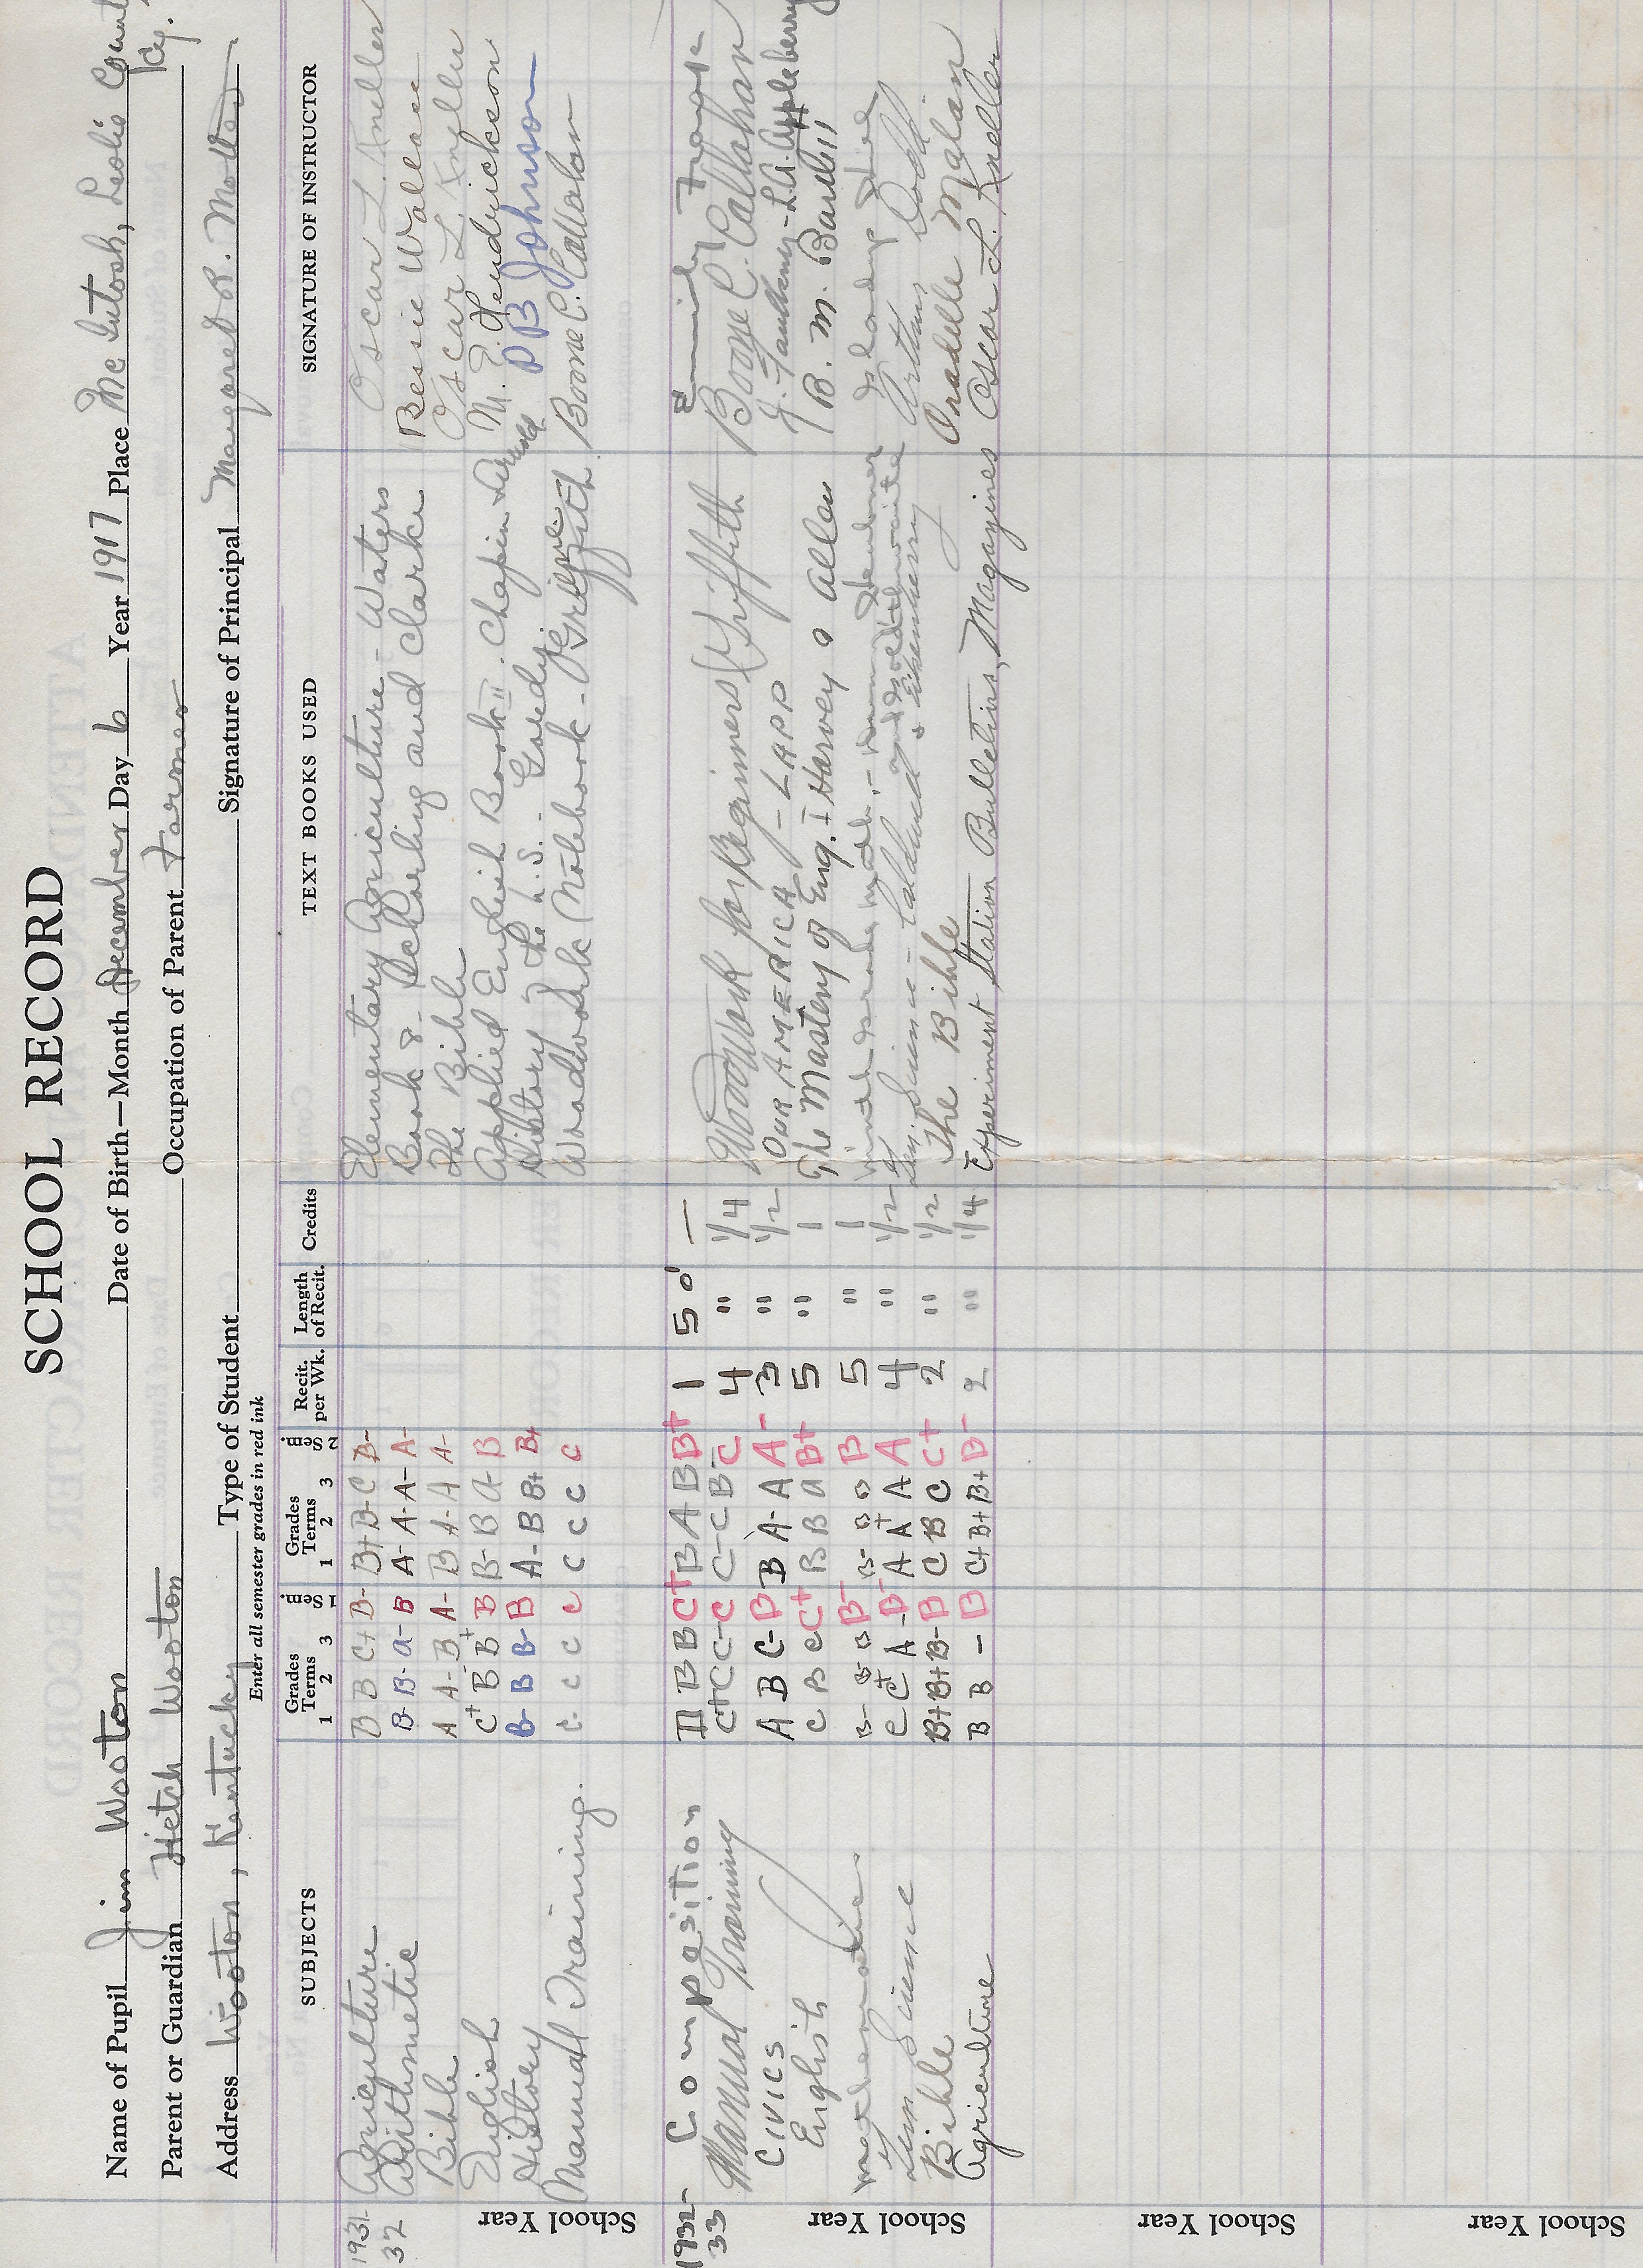 SCHOOL RECORD
Name of Pupil Jim Wooton Date of Birth—Month December Day 6 Year 1917 Place McIntosh, Leslie County Ky.
Parent or Guardian Fietch Wooton Occupation of Parent Farmer
Address Wooton, Kentucky Type of Student Signature of Principal Margaret R. Motter
Enter all semester grades in red ink
SUBJECTS Grades Terms 1 2 3 1 Sem. Grades Terms 1 2 3 2 Sem. Recit. per Wk. Length of Recit. Credits TEXT BOOKS USED SIGNATURE OF INSTRUCTOR
1931-32
School Year
Agriculture B B C+ B- B+ B- C B- Elementary Agriculture - Waters Oscar L. Kneller
Arithmetic B- B- A- B A- A- A- A- Book 8 - Schorling and Clarke Bessie Wallace
Bible A A- B A- B A- A A- The Bible Oscar L. Kneller
English C+ B- B+ B B- B A- B Applied English Book II. Chapin M. E. Hendrickson
History B- B B- B A- B B+ B+ History of the U.S. - Gordy. P B Johnson
Manual Training. C- C C C C C C C Woodwork Notebook - Griffith Boone C. Callahan
1932-33
School Year
Composition D B B C+ B A B B+ 1 50' — Emily
Manual Training C+ C C- C C- C- B- C 4 " 1/4 Woodwork for Beginners Griffith Boone C. Callahan
CIVICS A B C- B B A- A A- 3 " 1/2 OUR AMERICA - LAPP J. Faulkner - L.A. Appleberry
English C B C C+ B B A B+ 5 " 1 The Mastery of Eng. I Harvey & Allen B. M. Barlill
Mathematics B- B- B B- B- B B B 5 " 1
Gen. Science C C+ A- B- A- A+ A A 4 " 1/2 Gen. Science - Caldwell Arthur Dodd.
Bible B+ B+ B- B C B C C+ 2 " 1/2 The Bible Oradelle Malan
Agriculture B B - B C+ B+ B+ B- 2 " 1/4 Experiment Station Bulletins, Magazines Oscar L. Kneller
School Year
School Year